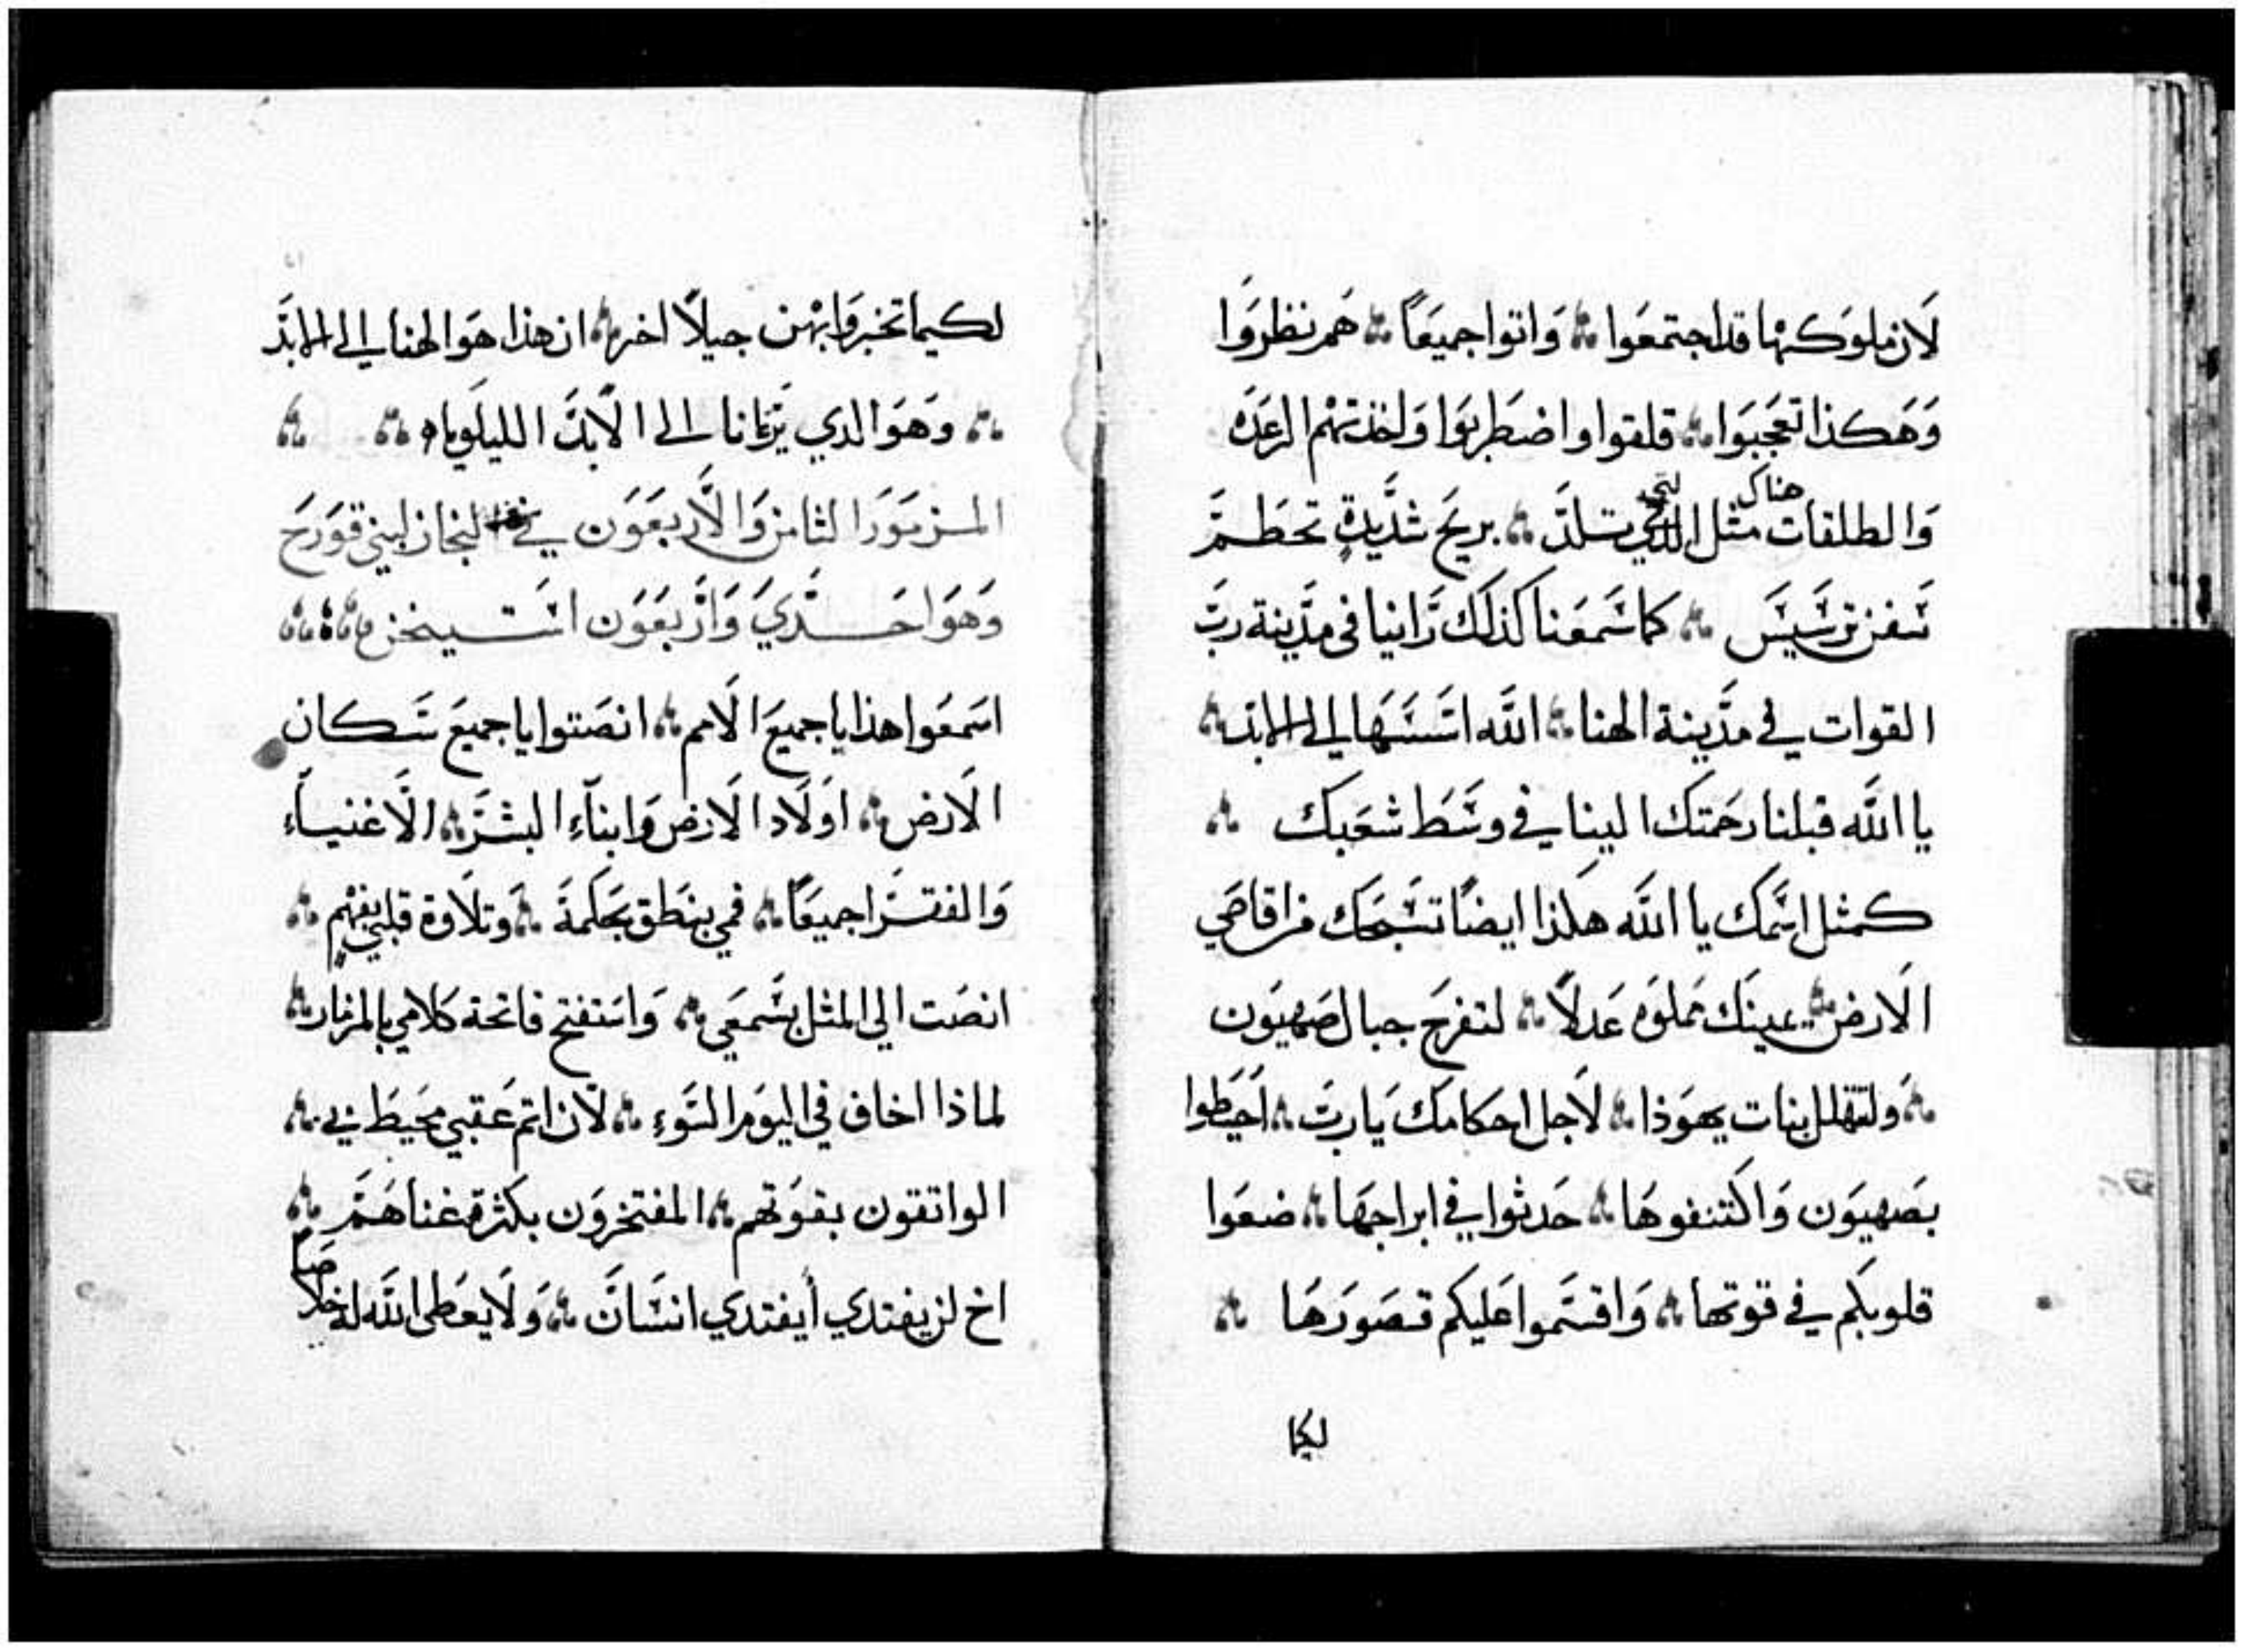 لان ملوكها قد اجتمعوا ؞ واتوا جميعًا ؞ هم نظروا
وهكذا تعجبوا ؞ قلقوا واضطربوا واخذتهم الرعده
والطلقات هناك مثل التي تلد ؞ بريح شديدةٍ تحطم
سفن ترسيس ؞ كما سمعنا كذلك راينا في مدينة رب
القوات في مدينة الهنا ؞ الله اسسها الي الابد ؞
يا الله قبلنا رحمتك الينا في وسط شعبك ؞
كمثل اسمك يا الله هكذا ايضًا تسبحك من اقاصي
الارض ؞ يمينك مملوه عدلاً ؞ لتفرح جبال صهيون
؞ ولتتهلل بنات يهوذا ؞ لاجل احكامك يا رب ؞ احيطوا
بصهيون واكتنفوها ؞ حدثوا في ابراجها ؞ ضعوا
قلوبكم في قوتها ؞ واقسموا عليكم قصورها ؞
لكيما
لكيما تخبروا بهن جيلاً اخر ؞ ان هذا هو الهنا الي الابد
؞ وهو الدي يرعانا الى الابد الليلويا ؞ ؞
المزمور الثامن والاربعون في لنجاز لبني قورح
وهو احدي واربعون استيخن ؞ ؞ ؞
اسمعوا هذا يا جميع الامم ؞ انصتوا يا جميع سكان
الارض ؞ اولاد الارض وابنآء البشر ؞ الاغنيآء
والفقرا جميعًا ؞ فمي ينطق بحكمة ؞ وتلاوة قلبي بفهمٍ ؞
انصت الي المثل بسمعي ؞ واستفتح فاتحة كلامي بالمزمار ؞
لماذا اخاف في اليوم السوء ؞ لان اثم عقبي محيط بي ؞
الواتقون بقوتهم ؞ المفتخرون بكثرة غناهم ؞
اخ لن يفتدي أيفتدي انسان ؞ ولا يعطى الله له خلاصاً